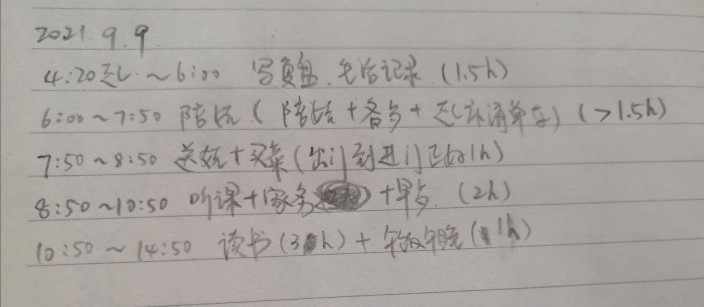 2021.9.9
4:20起 ~ 6:00 写复盘、生活记录 (1.5h)
6:00 ~ 7:50 陪娃 ( 陪娃 + 备多 + 起床清单等) ( >1.5h)
7:50 ~ 8:50 送娃 + 买菜 (出门到进门正好1h)
8:50 ~ 10:50 听课 + 家务 + 早点 (2h)
10:50 ~ 14:50 读书 (3h) + 午饭午睡 (1h)